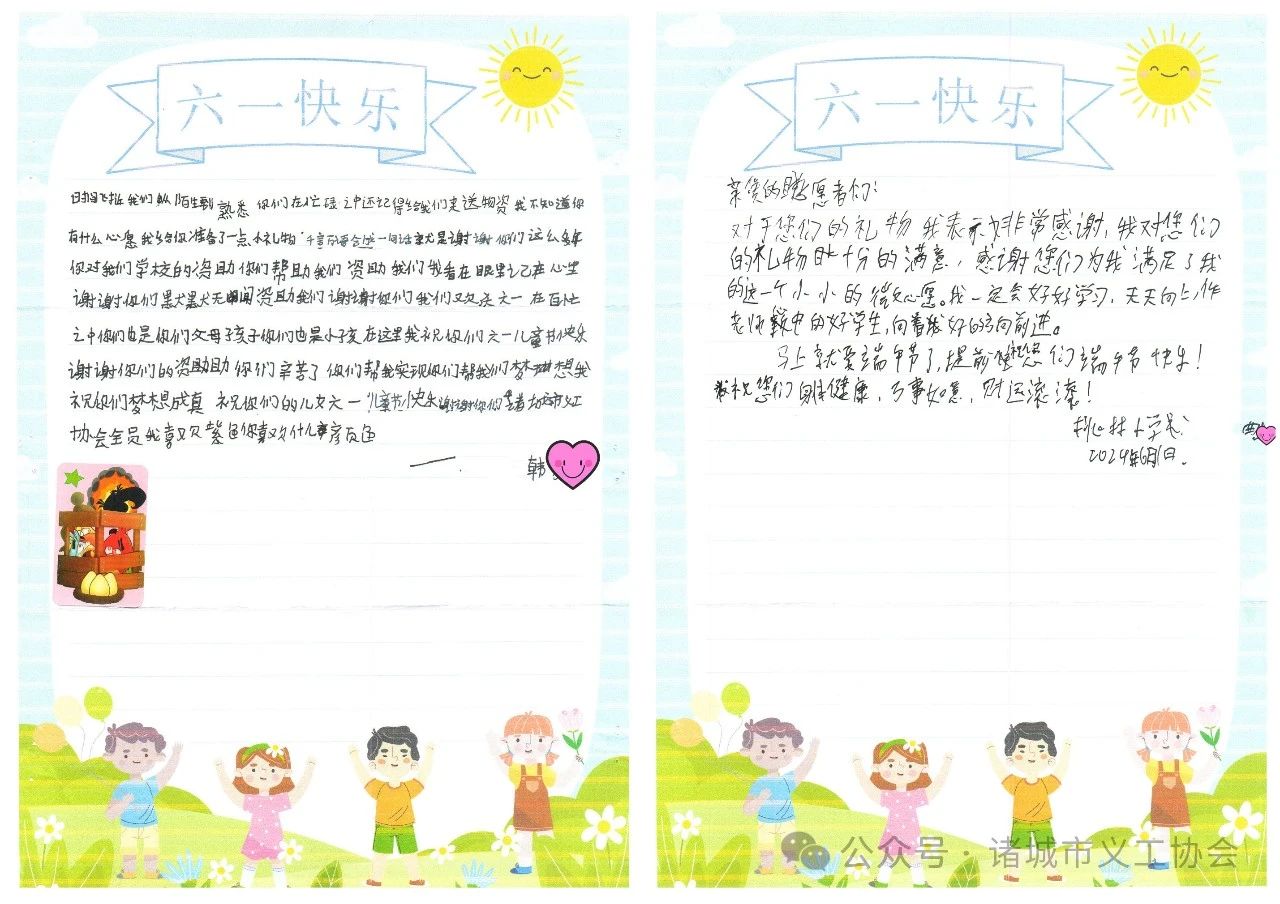 六一快乐
时光飞逝 我们从陌生到熟悉 你们在忙碌之中还记得给我们来送物资 我不知道你
有什么心愿 我给你准备了一点小礼物 千言万语合成一句话就是谢谢你们这么多年
你对我们学校的资助你们帮助我们资助我们我看在眼里记在心里
谢谢你们默默无闻资助我们谢谢你们我们又欢庆六一 在百忙
之中你们也是你们父母子孩子你们也是小子孩在这里我祝你们六一儿童节快乐
谢谢你们的资助助你们辛苦了你们帮我实现你们帮我们梦想我
祝你们梦想成真 祝你们的儿女六一儿童节快乐谢谢你们诸城市义工
协会全员 我喜欢紫色你喜欢什么颜色
一. 韩
六一快乐
亲爱的志愿者们：
对于您们的礼物我表示非常感谢，我对您们
的礼物是十分的满意，感谢您们为我满足了我
的这一个小小的微心愿。我一定会好好学习，天天向上，作
老师眼中的好学生，向着好的方向前进。
马上就要端午节了，提前祝您们端午节快乐！
我祝您们身体健康，万事如意，财运滚滚！
桃林小学
2024年6月1日。
公众号·诸城市义工协会